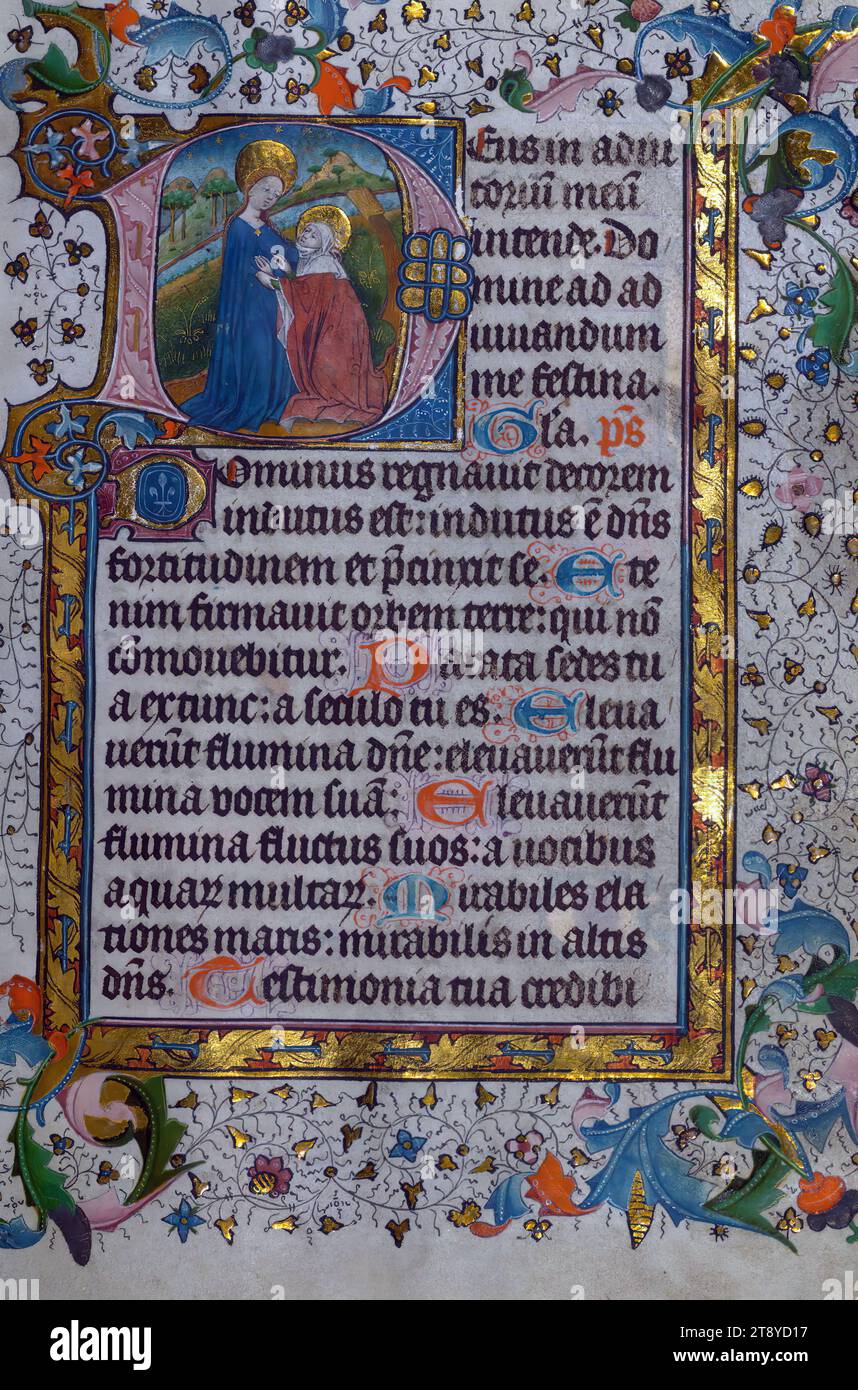 Deus in adiu
toriū meū
intende. Do
mine ad ad
iuuandum
me festina.
Gl'a. ps̄
Dominus regnauit decorem
indutus est: indutus ē dn̄s
fortitudinem et p̄cinxit se. Ete
nim firmauit orbem terre: qui nō
cōmouebitur. Parata sedes tu
a ex tunc: a seculo tu es. Eleua
uerūt flumina dn̄e: eleuauerūt flu
mina vocem suā. Eleuauerūt
flumina fluctus suos: a uocibus
aquaꝝ multaꝝ. Mirabiles ela
tiones maris: mirabilis in altis
dn̄s. Testimonia tua credibi
alamy
Image ID: 2T8YD17
www.alamy.com